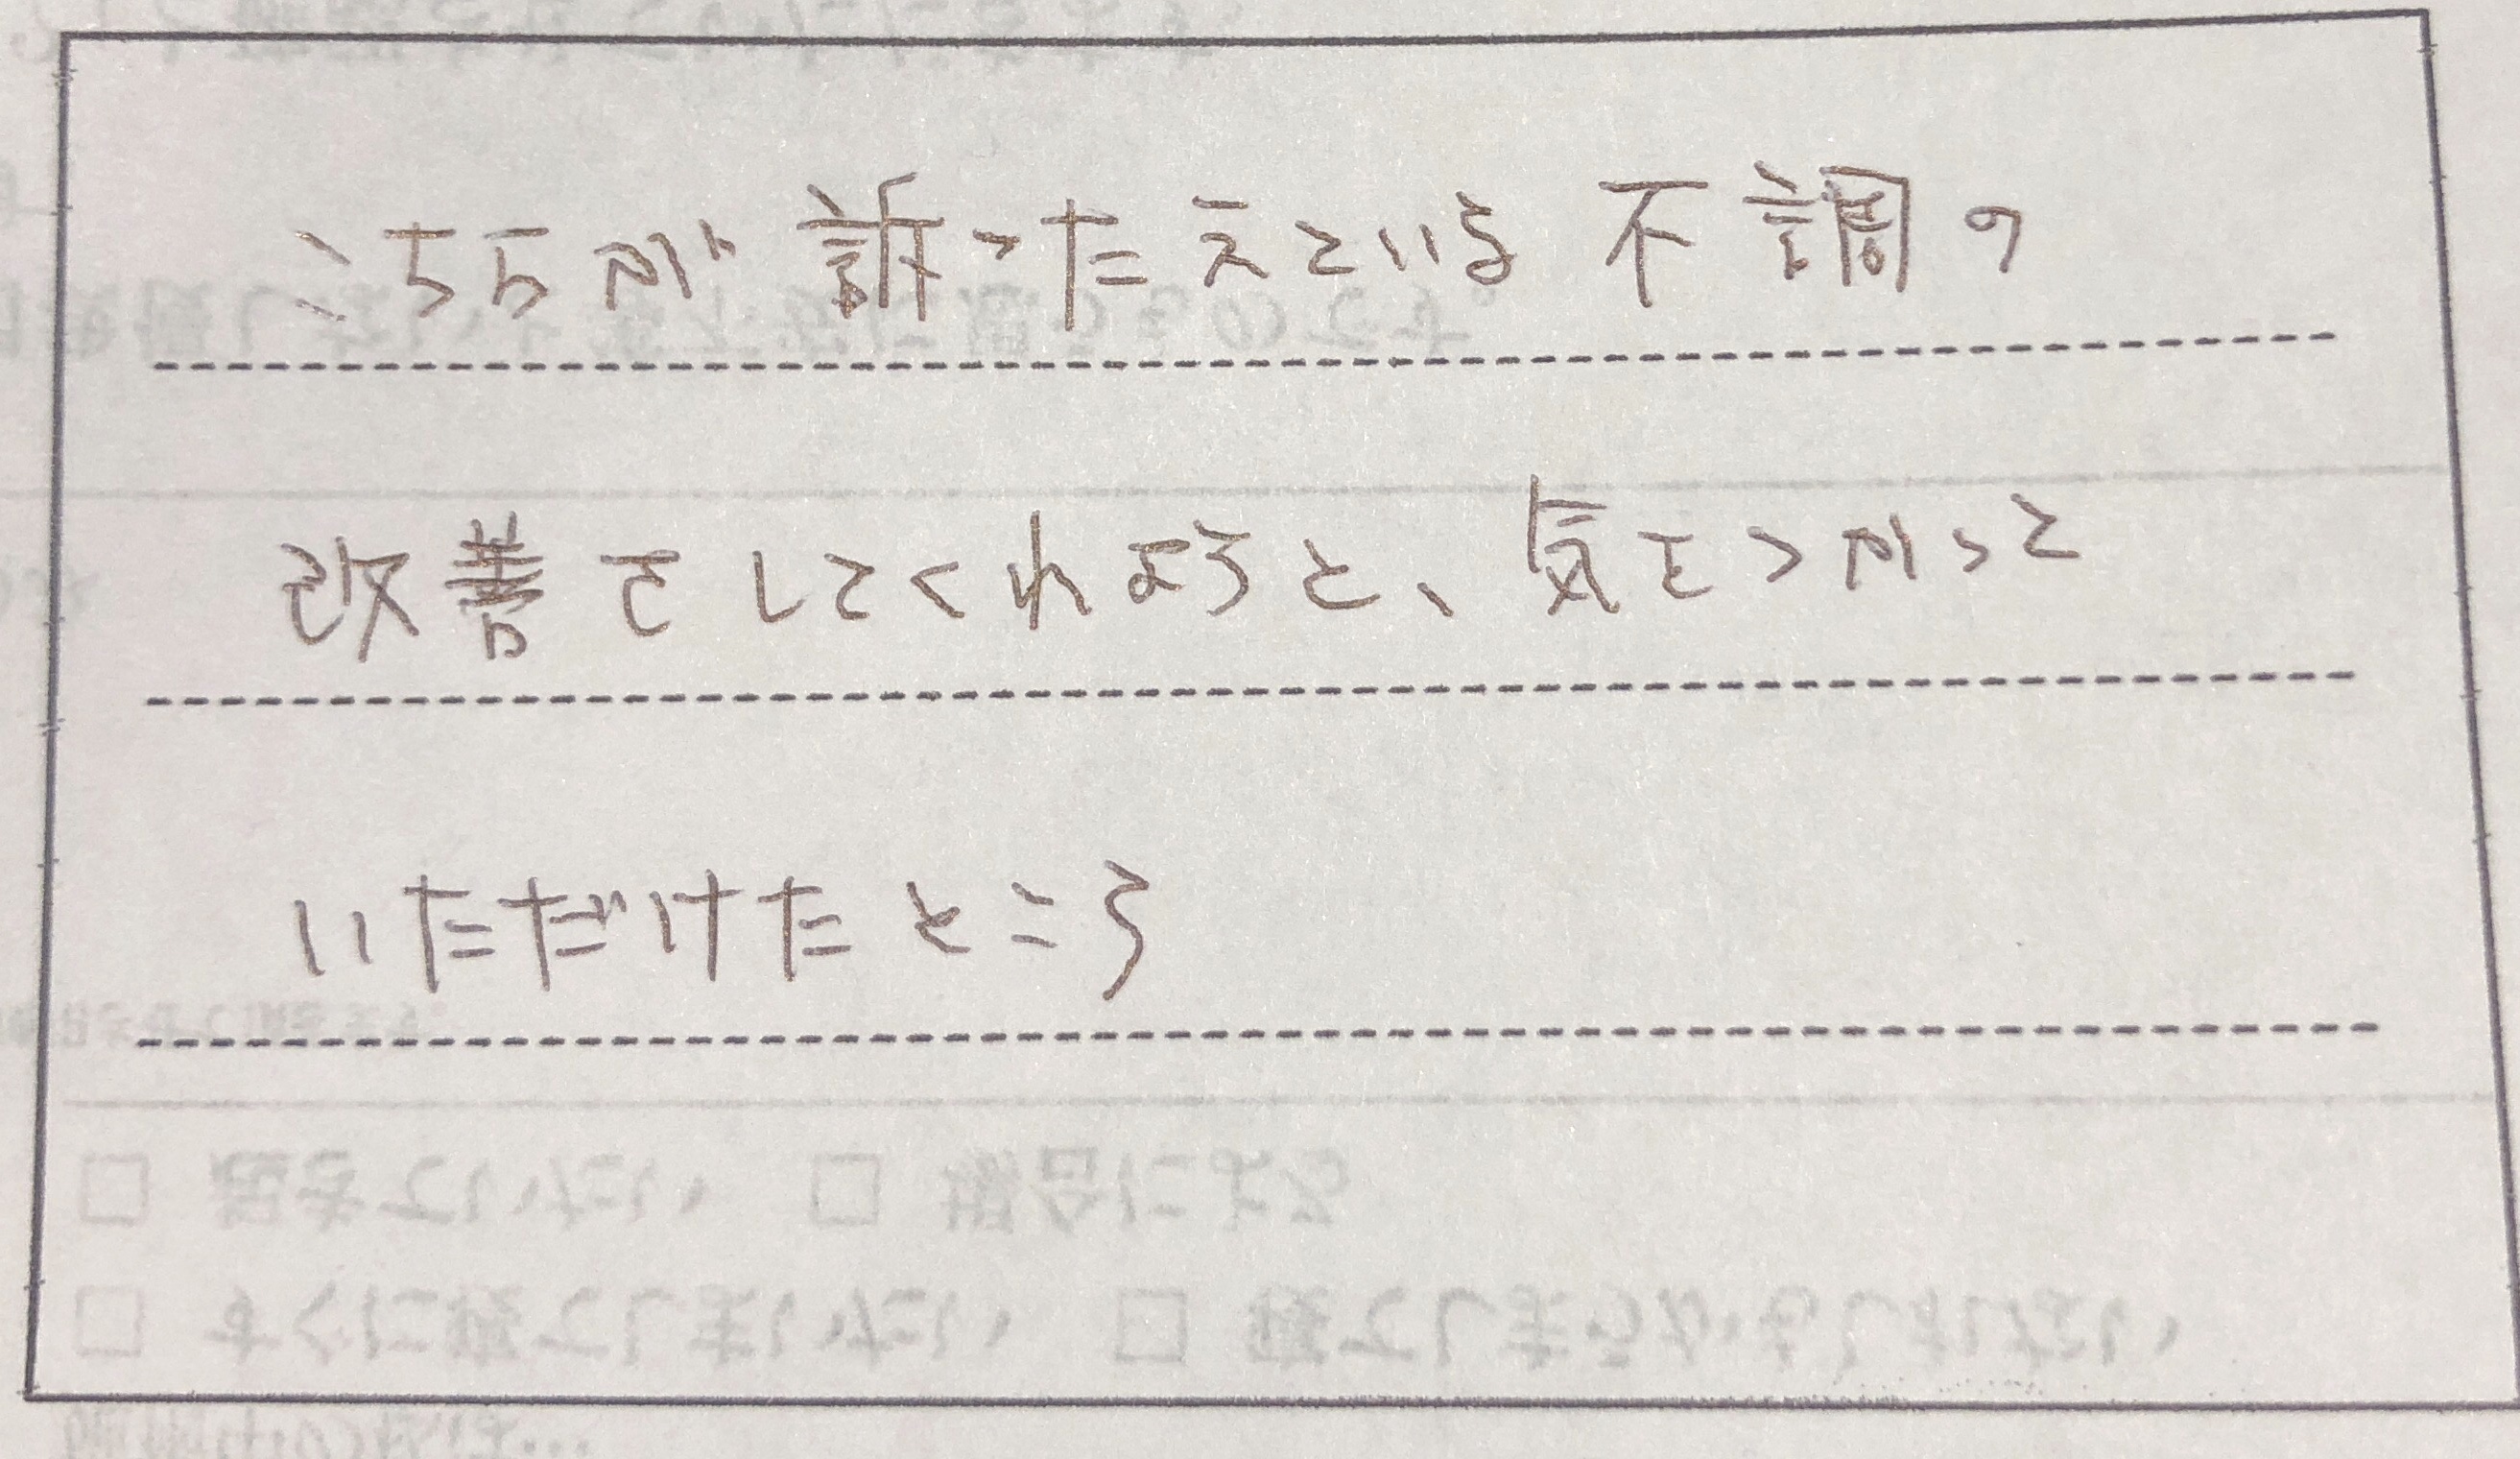 こちらが訴ったえている不調の
改善をしてくれようと、気をつかって
いただけたところ